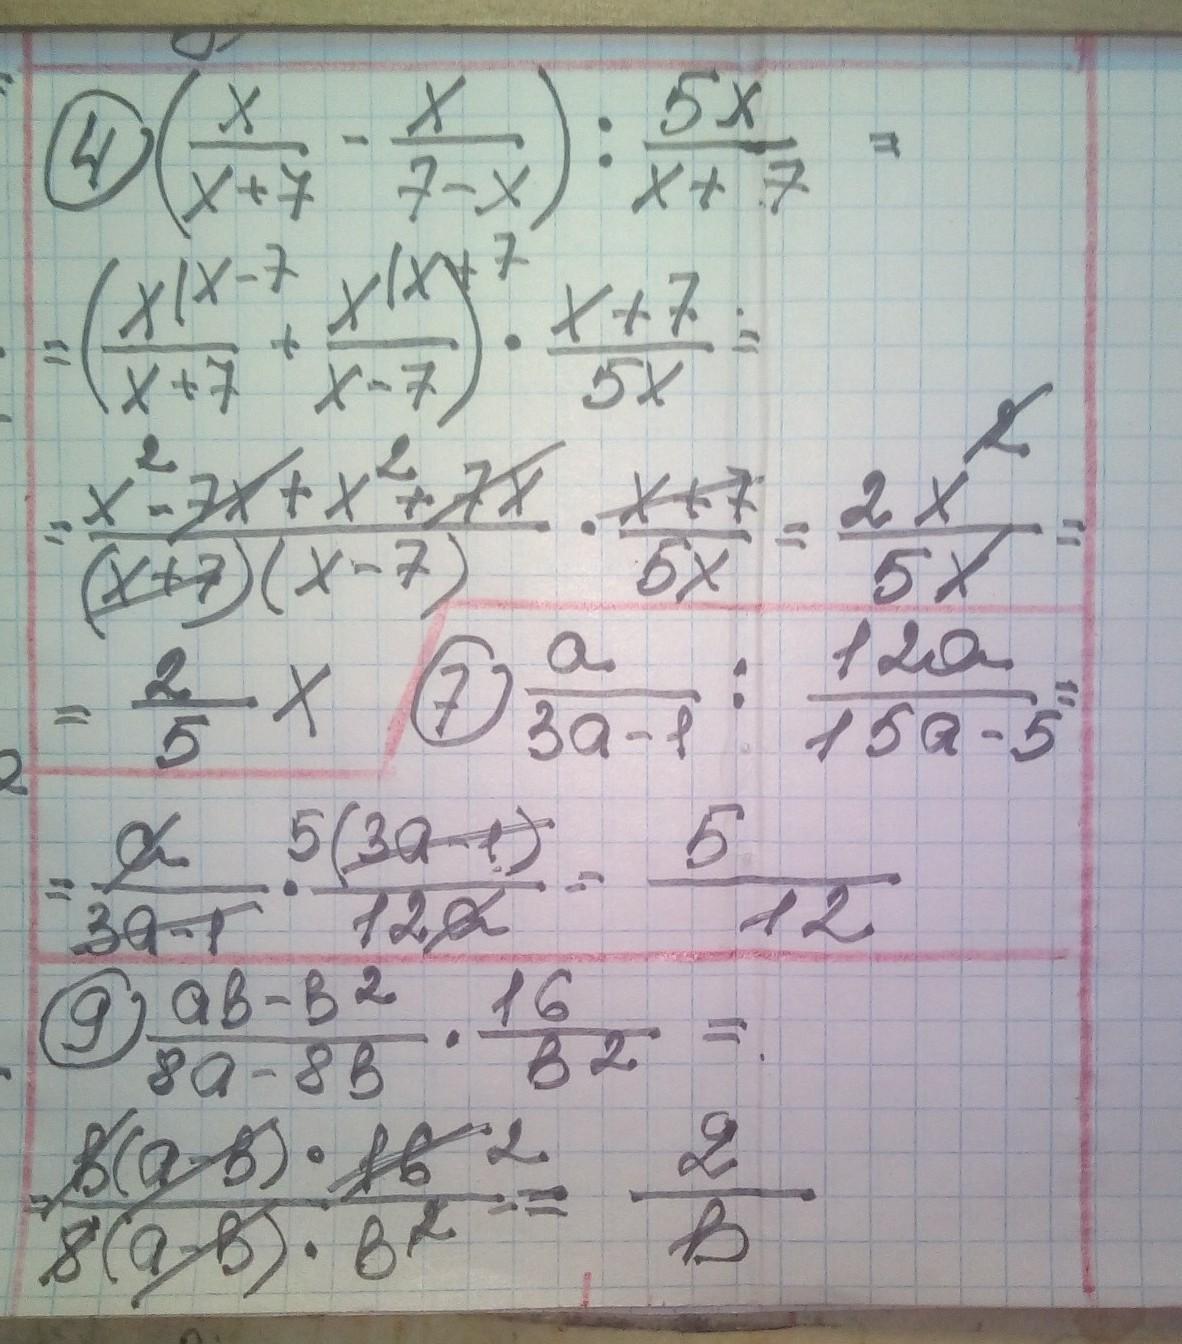 ④ (x/(x+7) - x/(7-x)) : 5x/(x+7) =
= (x|x-7/(x+7) + x|x+7/(x-7)) · (x+7)/5x =
= (x²-7x+x²+7x)/((x+7)(x-7)) · (x+7)/5x = 2x²/5x =
= 2/5 x
⑦ a/(3a-1) : 12a/(15a-5) =
= a/(3a-1) · 5(3a-1)/12a = 5/12
⑨ (ab-b²)/(8a-8b) · 16/b² =
= b(a-b)·16 2/(8(a-b)·b²) = 2/b